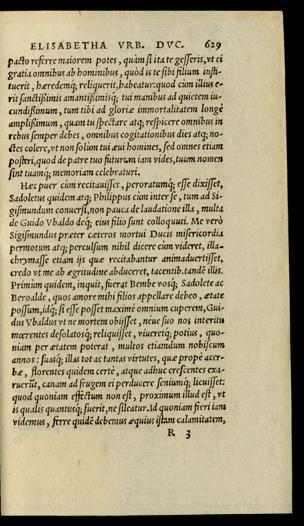 ELISABETHA VRB. DVC. 629
pacto referre maiorem potes, quàm si ita te gesseris, vt ei
gratia omnibus ab hominibus, quòd is te sibi filium insti-
tuerit, hæredemq; reliquerit, habeatur: quod cùm illius e-
rit sanctißimis amantißimisq; tui manibus ad quietem iu-
cundißimum, tum tibi ad gloriæ immortalitatem longè
amplißimum, quam tu spectare atq; respicere omnibus in
rebus semper debes, omnibus cogitationibus dies atq; no-
ctes colere, vt non solùm tui æui homines, sed omnes etiam
posteri, quod de patre tuo futurum iam vides, tuum nomen
sint tuamq; memoriam celebraturi.
Hæc puer cùm recitauisset, peroratumq; esse dixisset,
Sadoletus quidem atq; Philippus cùm inter se, tum ad Si-
gismundum conuersi, non pauca de laudatione illa, multa
de Guido Vbaldo deq; eius filio sunt colloquuti. Me verò
Sigismundus præter cæteros mortui Ducis misericordia
permotum atq; perculsum nihil dicere cùm videret, illa-
chrymasse etiam ijs quæ recitabantur animaduertisset,
credo vt me ab ægritudine abduceret, tacentib. tandē illis.
Primùm quidem, inquit, fuerat Bembe vosq; Sadolete ac
Beroalde, quos amore mihi filios appellare debeo, ætate
possum, idq; si esse posset maximè omnium cuperem, Gui-
dus Vbaldus vt ne mortem obijsset, neue suo nos interitu
mœrentes desolatosq; reliquisset, viueretq; potius, quo-
niam per ætatem poterat, multos etiamdum nobiscum
annos: suasq; illas tot ac tantas virtutes, quæ propè acer-
bæ, florentes quidem certè, atque adhuc crescentes exa-
ruerūt, canam ad frugem ei perducere seniumq; licuisset:
quod quoniam effectum non est, proximum illud est, vt
is qualis quantusq; fuerit, ne sileatur. Id quoniam fieri iam
videmus, ferre quidē debemus æquius istam calamitatem,
R 3